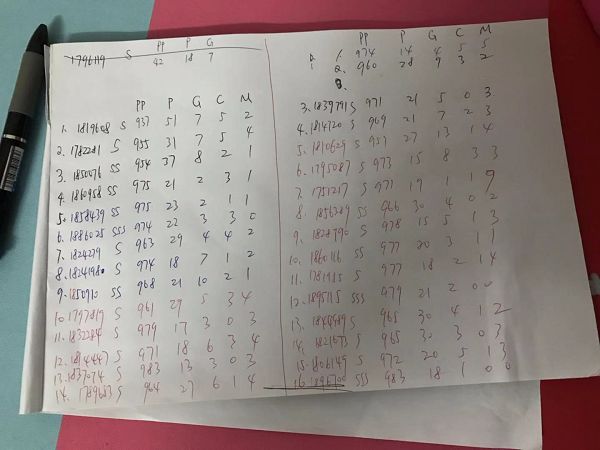 PP P G
1796119 S 42 18 7
PP P G C M
1. 1819608 S 937 51 7 5 2
2. 1782281 S 955 31 7 5 4
3. 1850076 SS 954 37 8 2 1
4. 1860958 SS 975 21 2 3 1
5. 1858439 SS 975 23 2 1 1
6. 1886025 SSS 974 22 3 3 0
7. 1824279 S 963 29 4 4 2
8. 1824198 S 974 18 7 1 2
9. 1850910 SS 968 21 10 2 1
10. 1797817 S 961 29 5 3 4
11. 1832284 S 979 17 3 0 3
12. 1814447 S 971 18 6 3 4
13. 1837074 S 983 13 3 0 3
14. 1789653 S 964 27 6 1 4
PP P G C M
1. 974 14 4 5 5
2. 960 28 9 3 2
3.
3. 1839791 S 971 21 5 0 3
4. 1814720 S 969 21 7 2 3
5. 1810629 S 957 27 13 1 4
6. 1795087 S 973 15 8 3 3
7. 1751217 S 977 17 1 1 9
8. 1856389 SS 966 30 4 0 2
9. 1828790 S 978 15 5 1 3
10. 1860116 SS 977 20 3 1 1
11. 1781915 S 977 18 2 1 4
12. 1895115 SSS 979 21 2 0 0
13. 1848989 S 965 30 4 1 2
14. 1821673 S 965 30 3 0 3
15. 1806149 S 972 20 5 1 3
16. 1896700 SSS 983 18 1 0 0